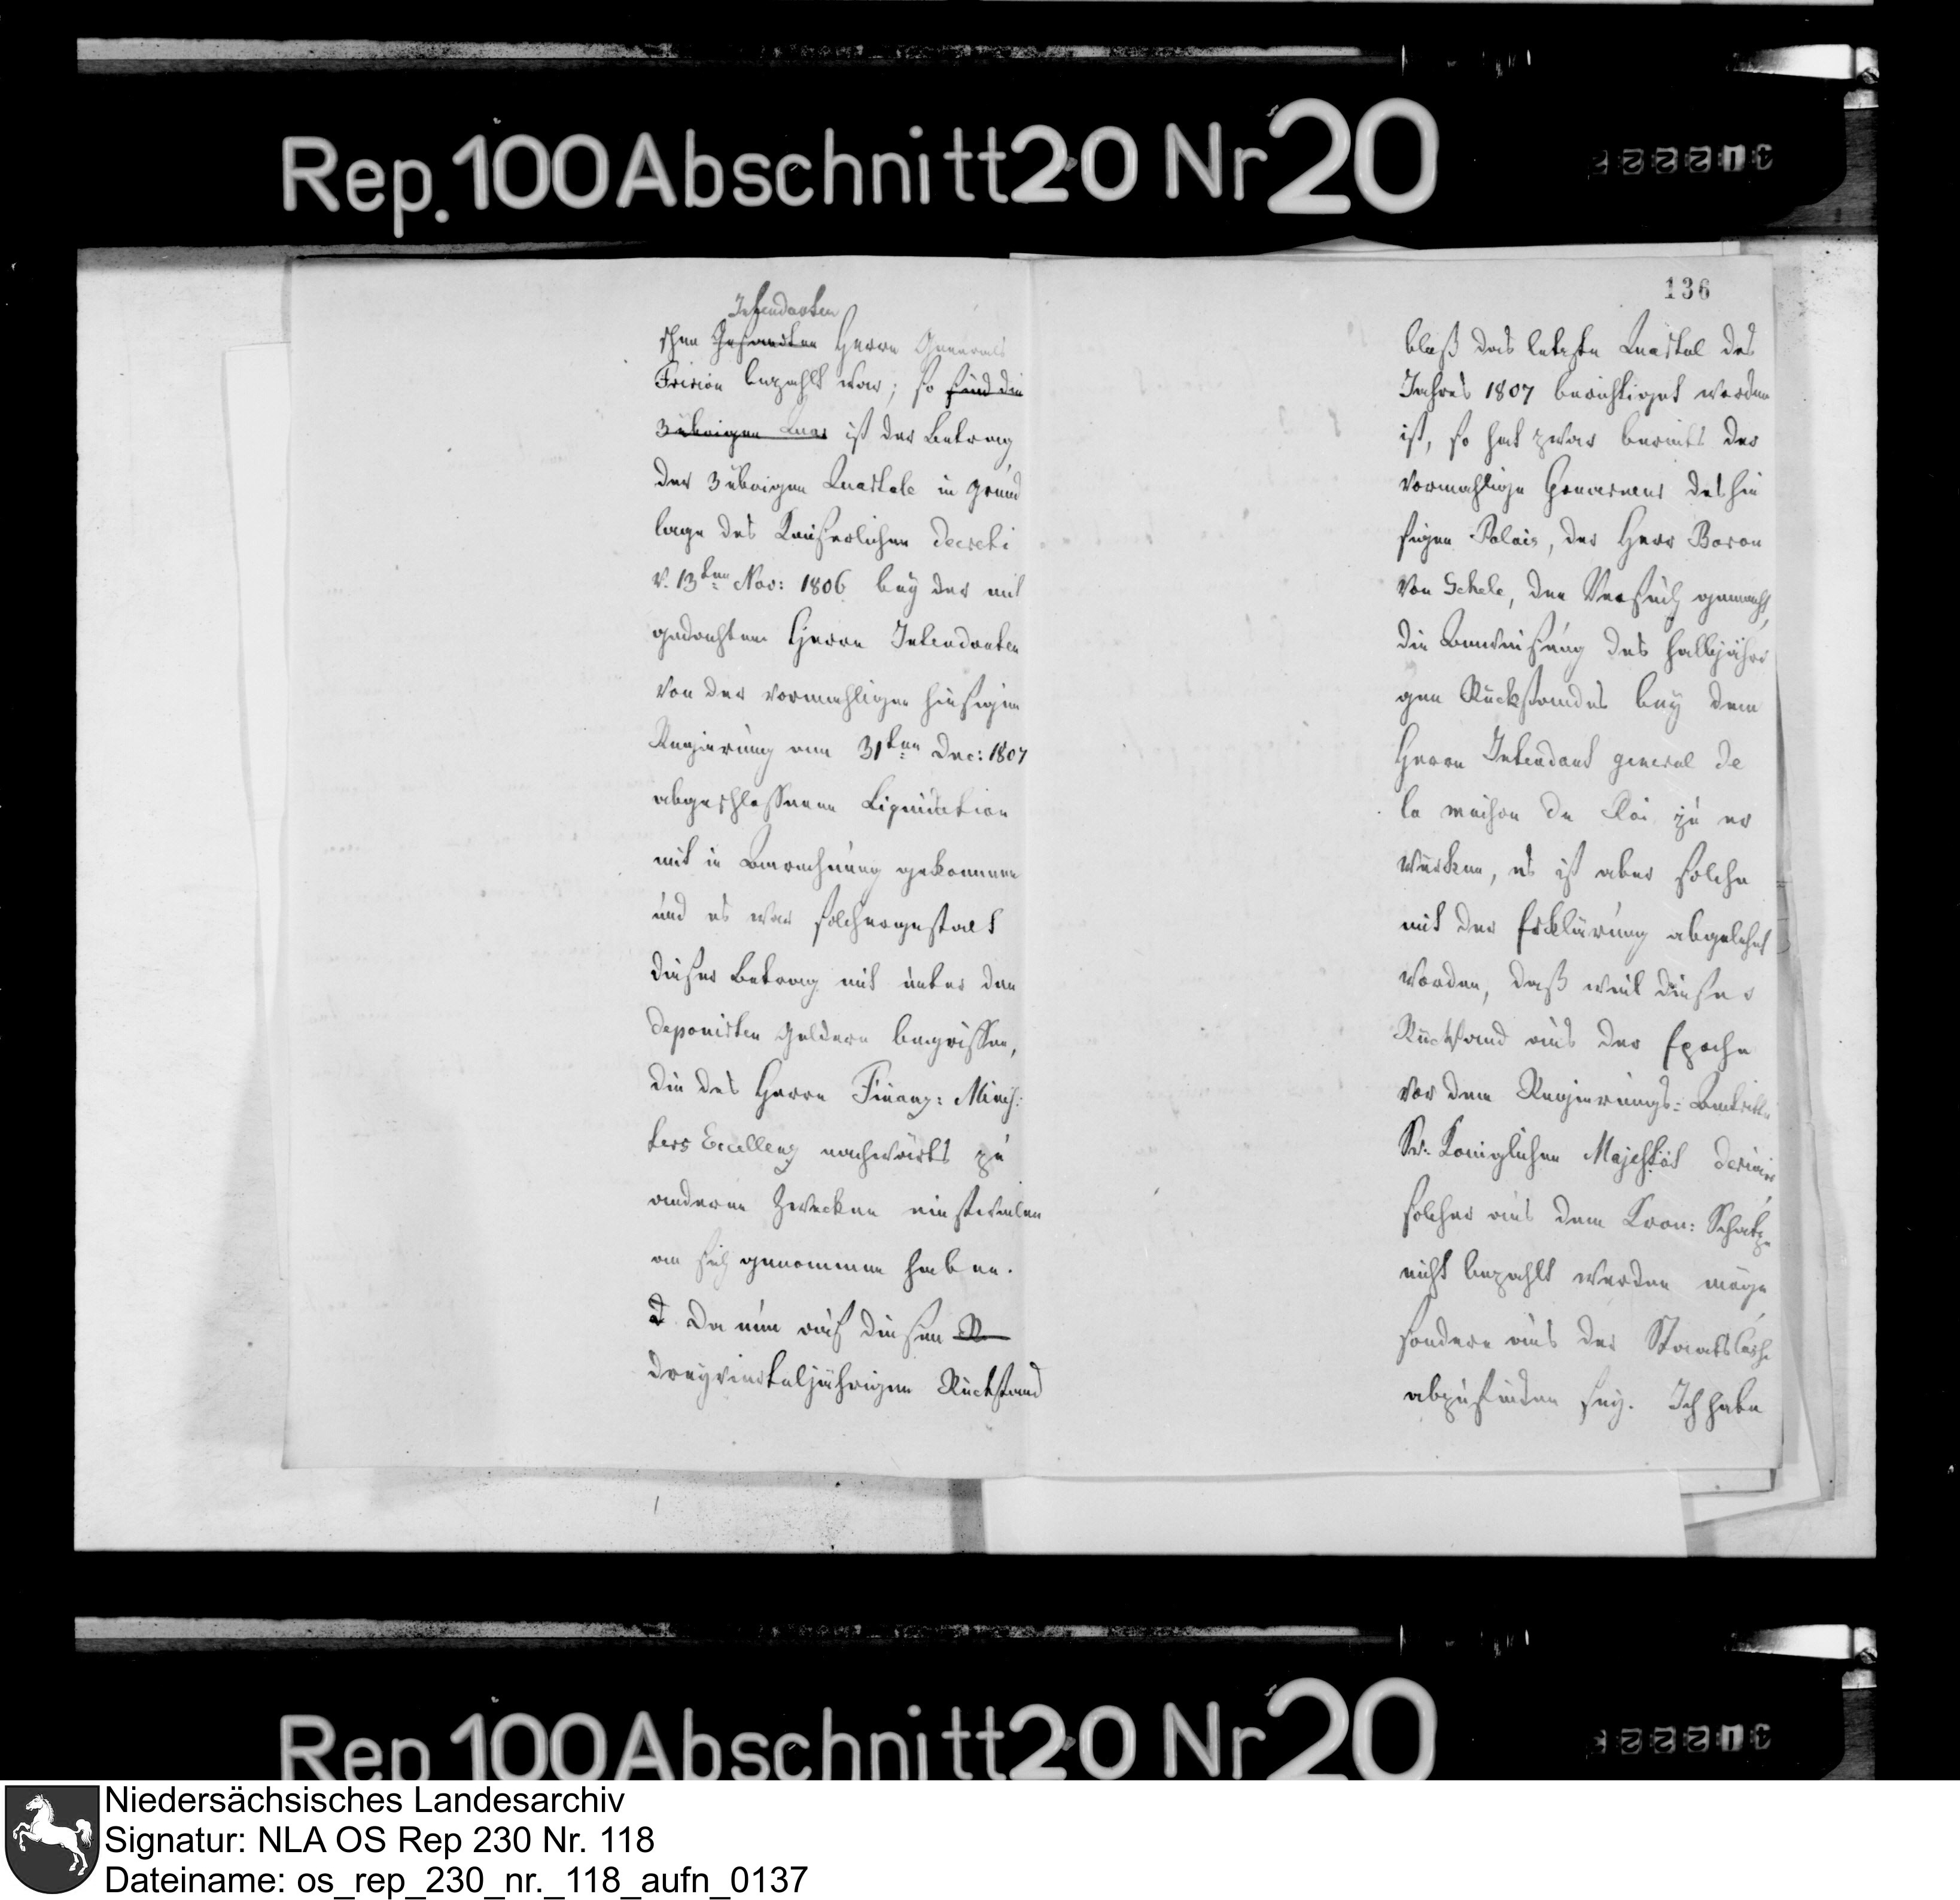 Rep. 100 Abschnitt 20 Nr 20
136
Intendanten
schen Gesandten Herrn Generals
bezahlt war; so sind die
3 übrigen Quar ist der Betrag
der 3 übrigen Quartale in Grund
lage des Kaiserlichen Decreti
v. 13ten Nov: 1806 bey der mit
gedachtem Herrn Intendanten
von der vormahligen hiesigen
Regierung am 31ten Dec: 1807
abgeschlossenen Liquidation
mit in Berechnung gekommen
und es war solchergestalt
dieser Betrag mit unter den
deponirten Geldern begriffen,
die des Herrn Finanz: Minis:
ters Excellenz nachwärts zu
anderen Zwecken einstweilen
an sich genommen haben.
Da nun auf diesen R
dreyvierteljährigen Rückstand
bloß das letzte Quartal des
Jahres 1807 berichtiget worden
ist, so hat zwar bereits der
vormahlige Gouverneur des hie
sigen Palais, der Herr Baron
von Schele, den Versuch gemacht,
die Anweisung des halbjähri
gen Rückstandes bey dem
Herrn Intendant general de
la maison du Roi zu er
würken, es ist aber solche
mit der Erklärung abgelehnt
worden, daß weil dieser
Rückstand aus der Epoche
vor dem Regierungs: Antritte
Sr. Königlichen Majestät
solcher aus dem Kron: Schatze
nicht bezahlt werden möge
sondern aus der Staatskasse
abzufinden sey. Ich habe
Rep 100 Abschnitt 20 Nr 20
Niedersächsisches Landesarchiv
Signatur: NLA OS Rep 230 Nr. 118
Dateiname: os_rep_230_nr._118_aufn_0137